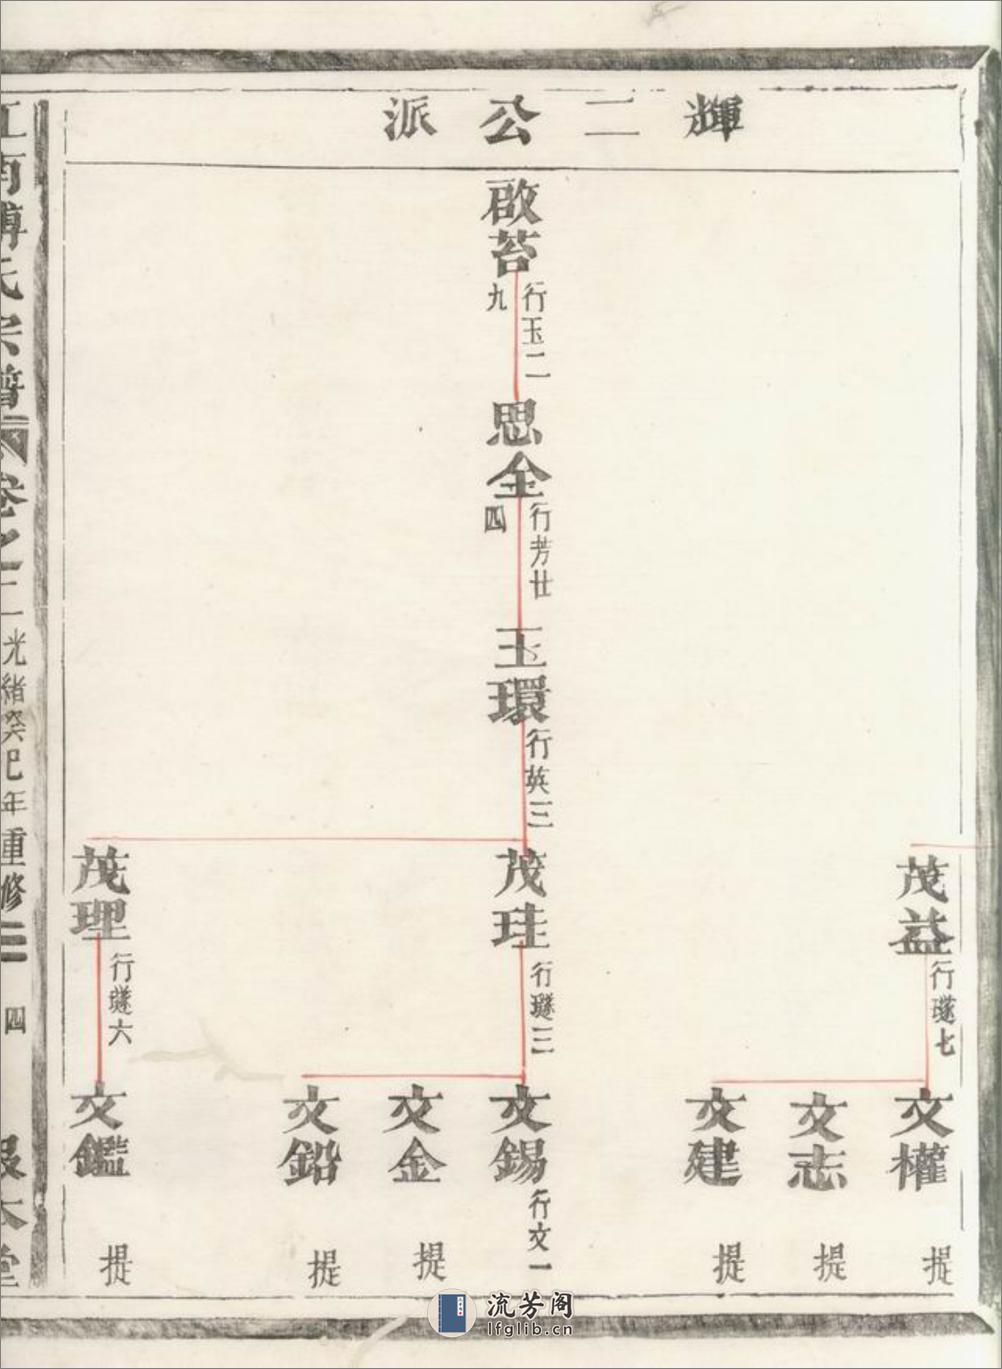 輝二公派
啟苔
行玉二
九
思全
行芳廿
四
玉環
行英三
茂益
行璲七
茂珪
行璲三
茂理
行璲六
文權
提
文志
提
文建
提
文錫
行文一
文金
提
文鉛
提
文鑑
提
江南傅氏宗譜
卷之二
光緒癸巳年重修
四
報本堂
流芳阁
lfglib.cn